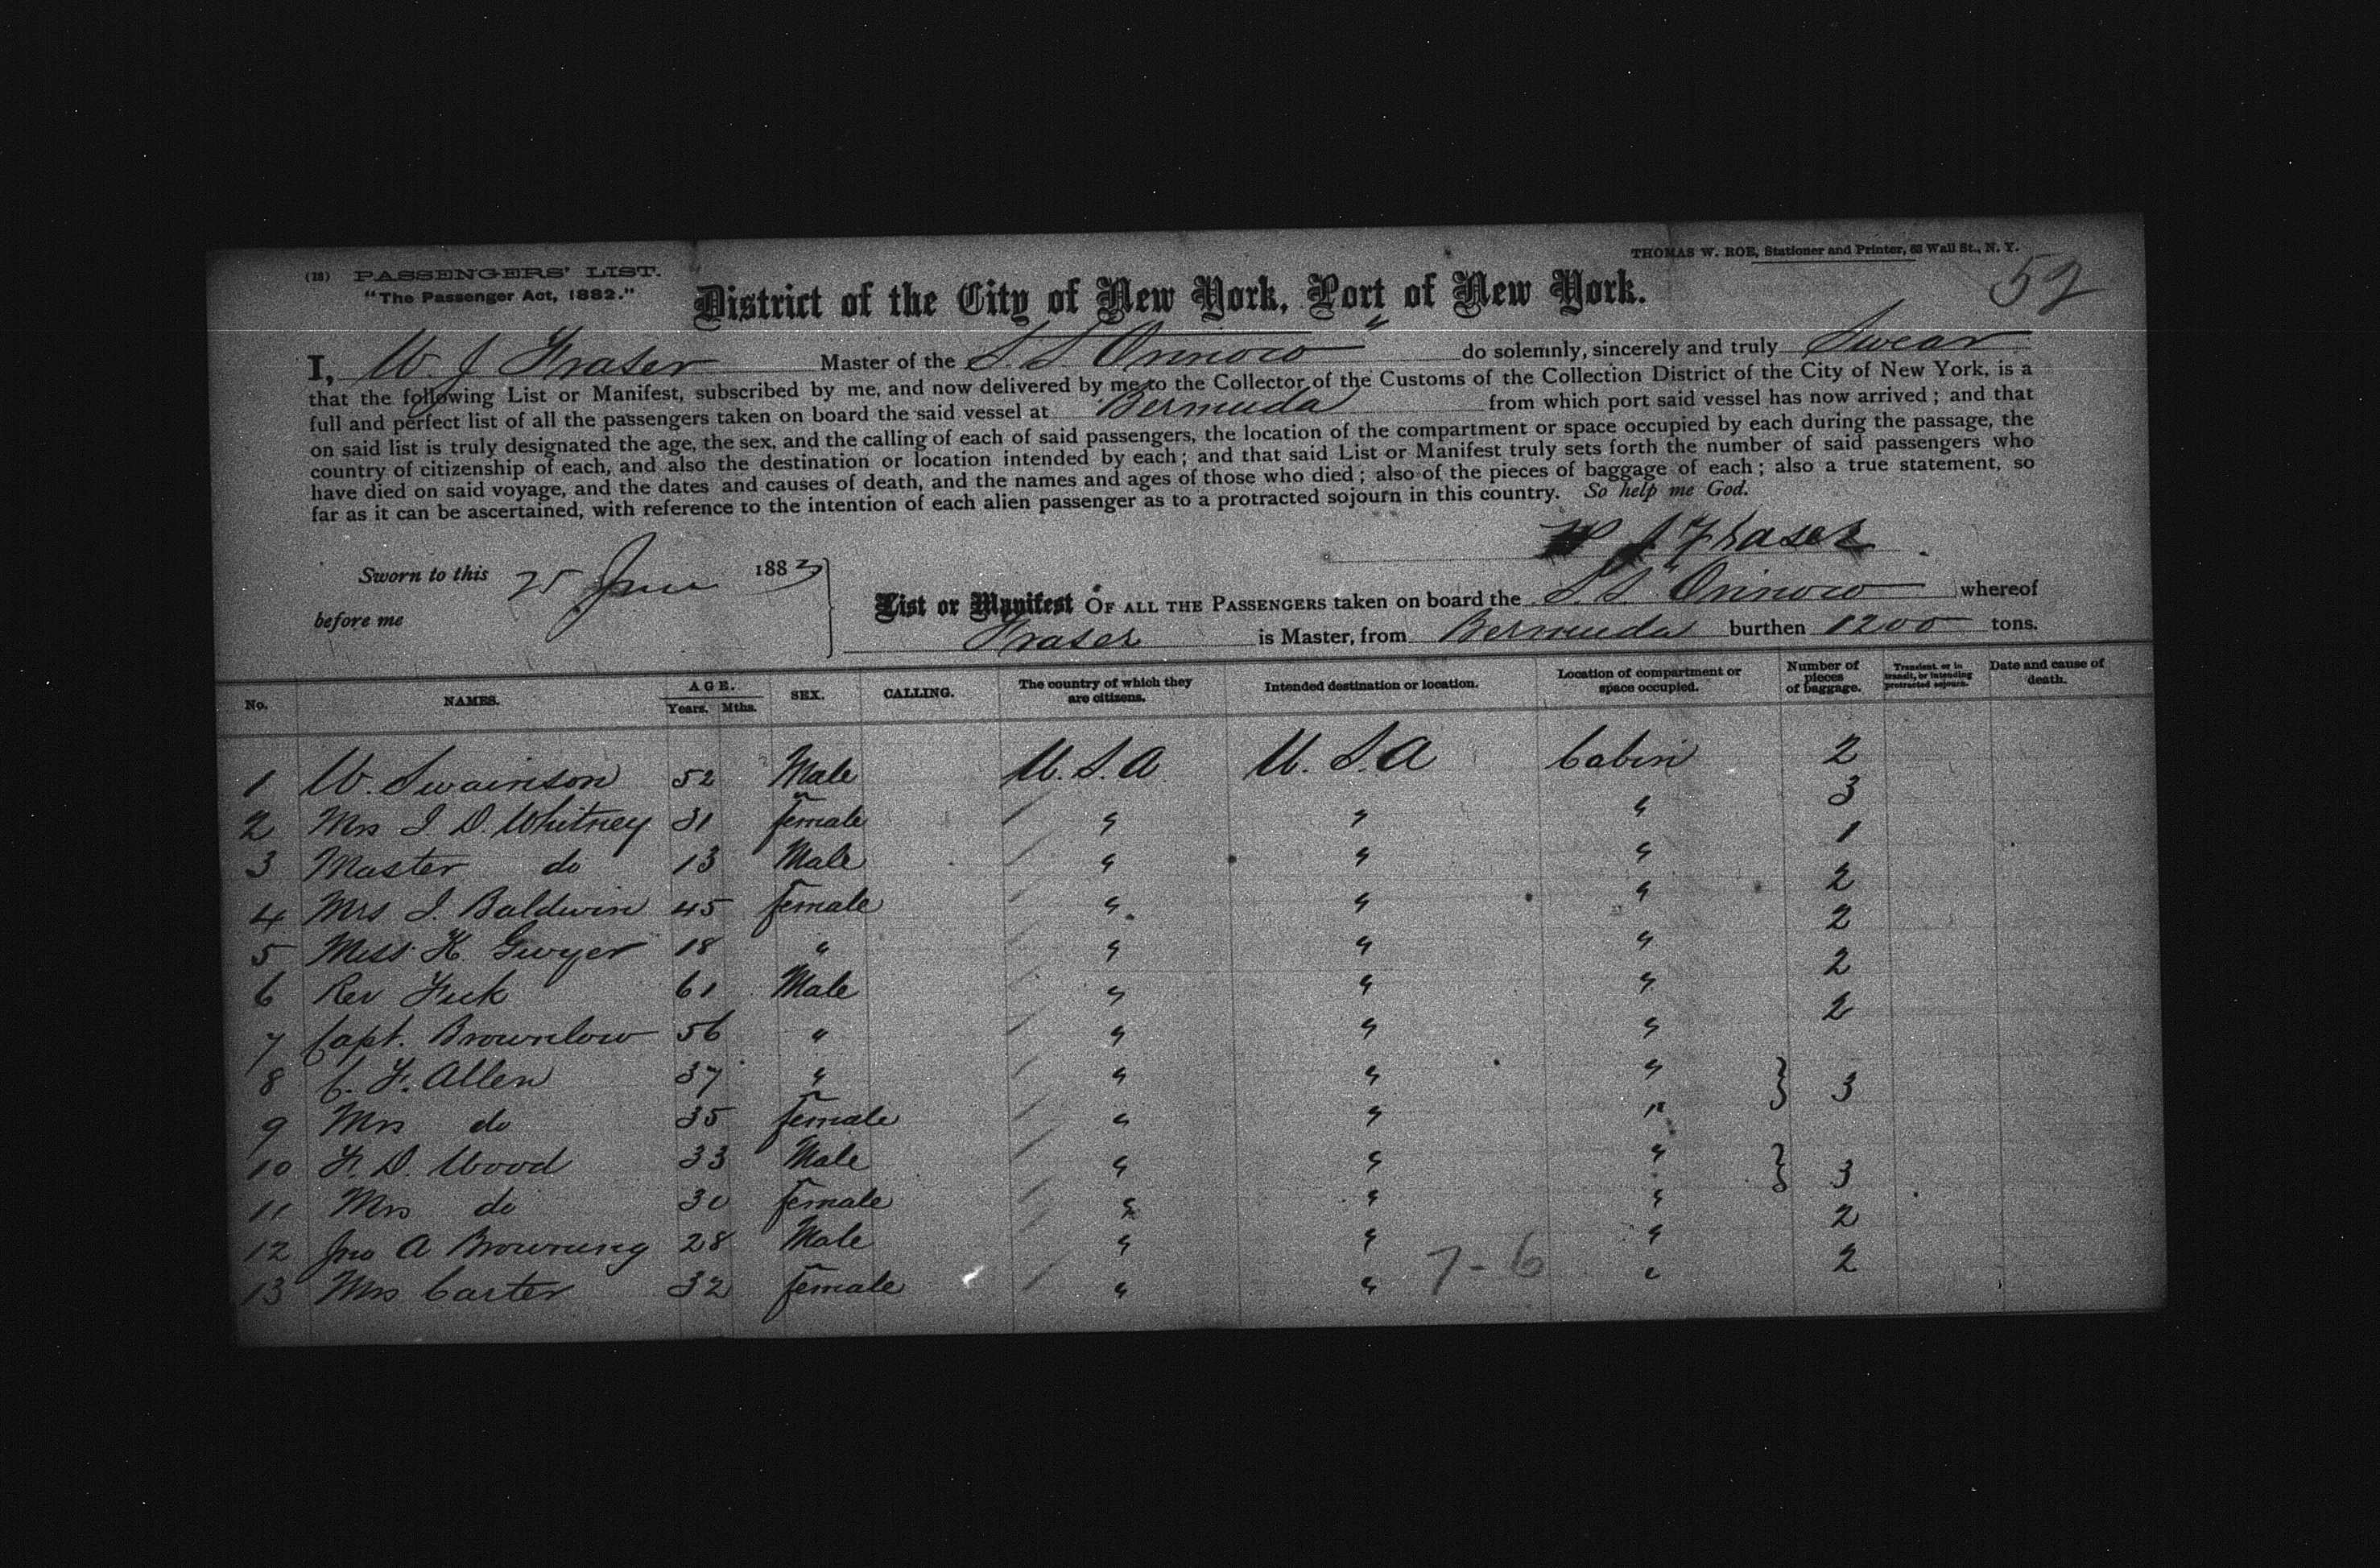 THOMAS W. ROE, Stationer and Printer, 63 Wall St., N. Y.
(18) PASSENGERS' LIST.
"The Passenger Act, 1882."
District of the City of New York, Port of New York.
52
I, W. J Fraser Master of the S. S Orinoco " do solemnly, sincerely and truly Swear
that the following List or Manifest, subscribed by me, and now delivered by me to the Collector of the Customs of the Collection District of the City of New York, is a
full and perfect list of all the passengers taken on board the said vessel at Bermuda from which port said vessel has now arrived; and that
on said list is truly designated the age, the sex, and the calling of each of said passengers, the location of the compartment or space occupied by each during the passage, the
country of citizenship of each, and also the destination or location intended by each; and that said List or Manifest truly sets forth the number of said passengers who
have died on said voyage, and the dates and causes of death, and the names and ages of those who died; also of the pieces of baggage of each; also a true statement, so
far as it can be ascertained, with reference to the intention of each alien passenger as to a protracted sojourn in this country. So help me God.
W J Fraser
Sworn to this 25 June 1883
before me
List or Manifest OF ALL THE PASSENGERS taken on board the S. S. Orinoco whereof
Fraser is Master, from Bermuda burthen 1200 tons.
No. NAMES. AGE. Years. Mths. SEX. CALLING. The country of which they are citizens. Intended destination or location. Location of compartment or space occupied. Number of pieces of baggage. Transient, or in transit, or intending protracted sojourn. Date and cause of death.
1 W. Swainson 52 Male U. S. A U. S. A Cabin 2
2 Mrs J. D. Whitney 31 female " " " 3
3 Master do 13 Male " " " 1
4 Mrs J. Baldwin 45 female " " " 2
5 Miss K. Gwyer 18 " " " " 2
6 Rev 61 Male " " " 2
7 Capt. Brownlow 56 " " " " 2
8 C. F. Allen 37 " " " " } 3
9 Mrs do 35 female " " "
10 F. D. Wood 33 Male " " " } 3
11 Mrs do 30 female " " "
12 Jno A Browning 28 Male " " " 2
13 Mrs Carter 32 female " " " 2
7-6